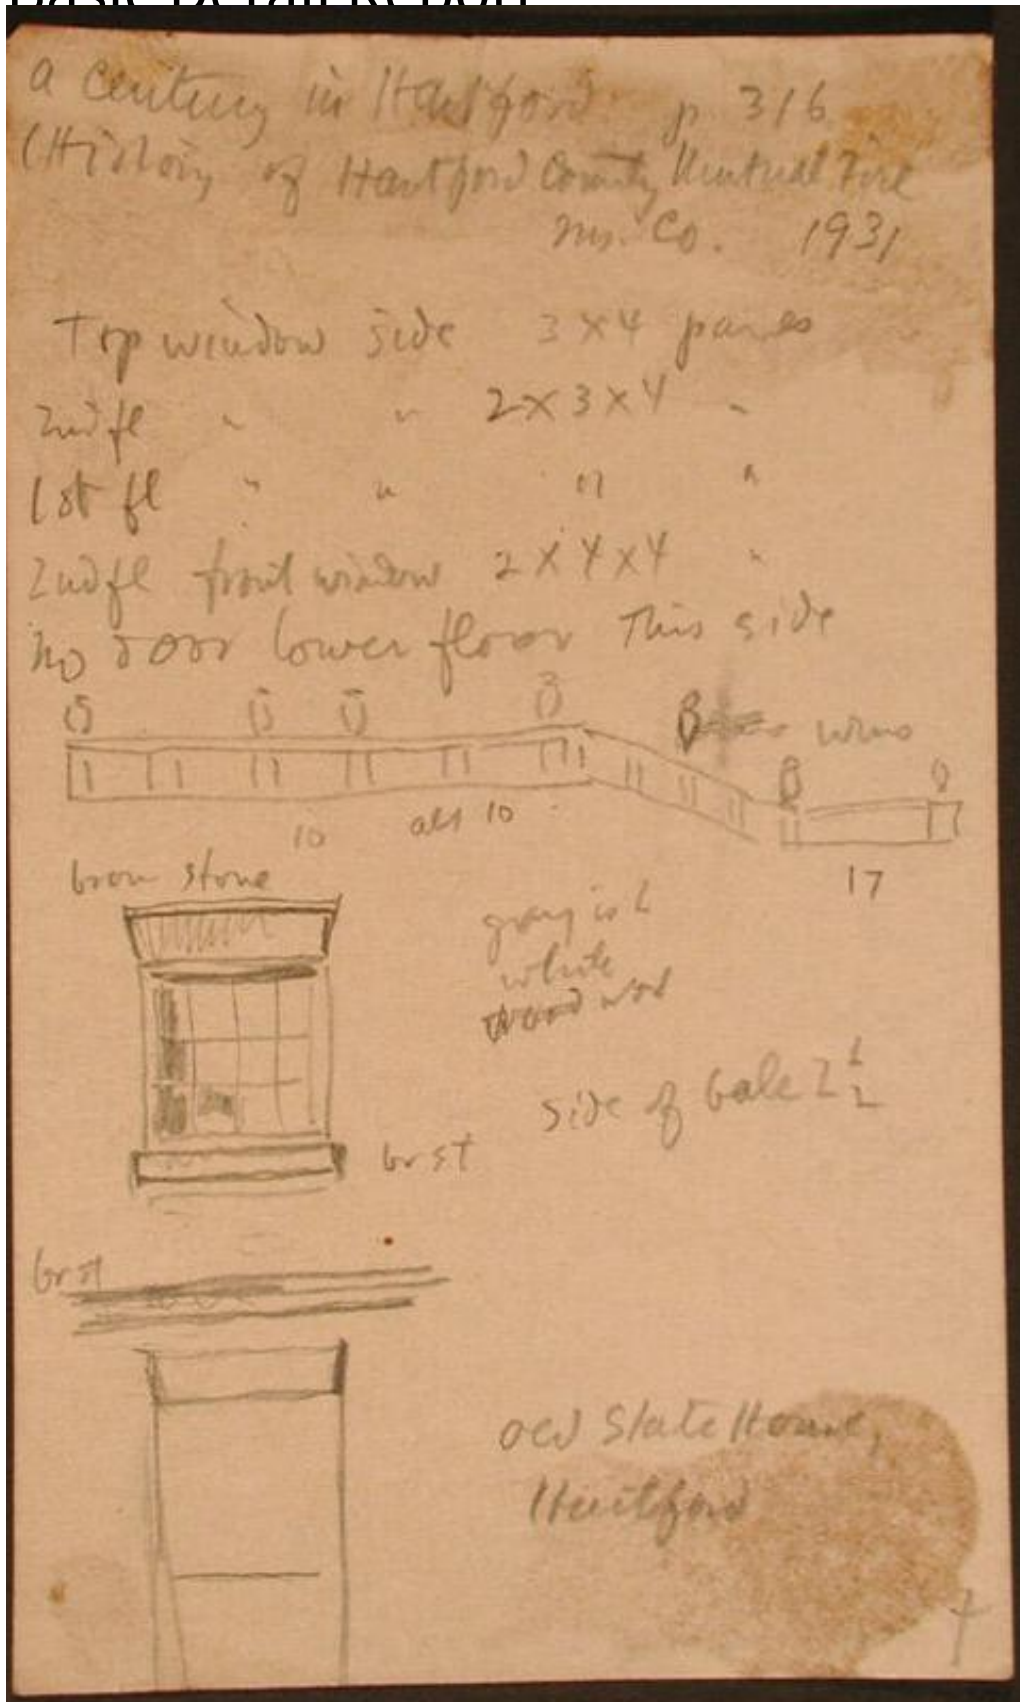 Basic Detail Report
A Century in Hartford p. 316
(History of Hartford County Mutual Fire
Ins. Co. 1931
Top window side 3 x 4 panes
2nd fl " " 2 x 3 x 4 "
1st fl " " " "
2nd fl front window 2 x 4 x 4 "
No door lower floor this side
10 all 10
17
brown stone
white
wood
side of 2 1/2
br st
br st
Old State House,
Hartford